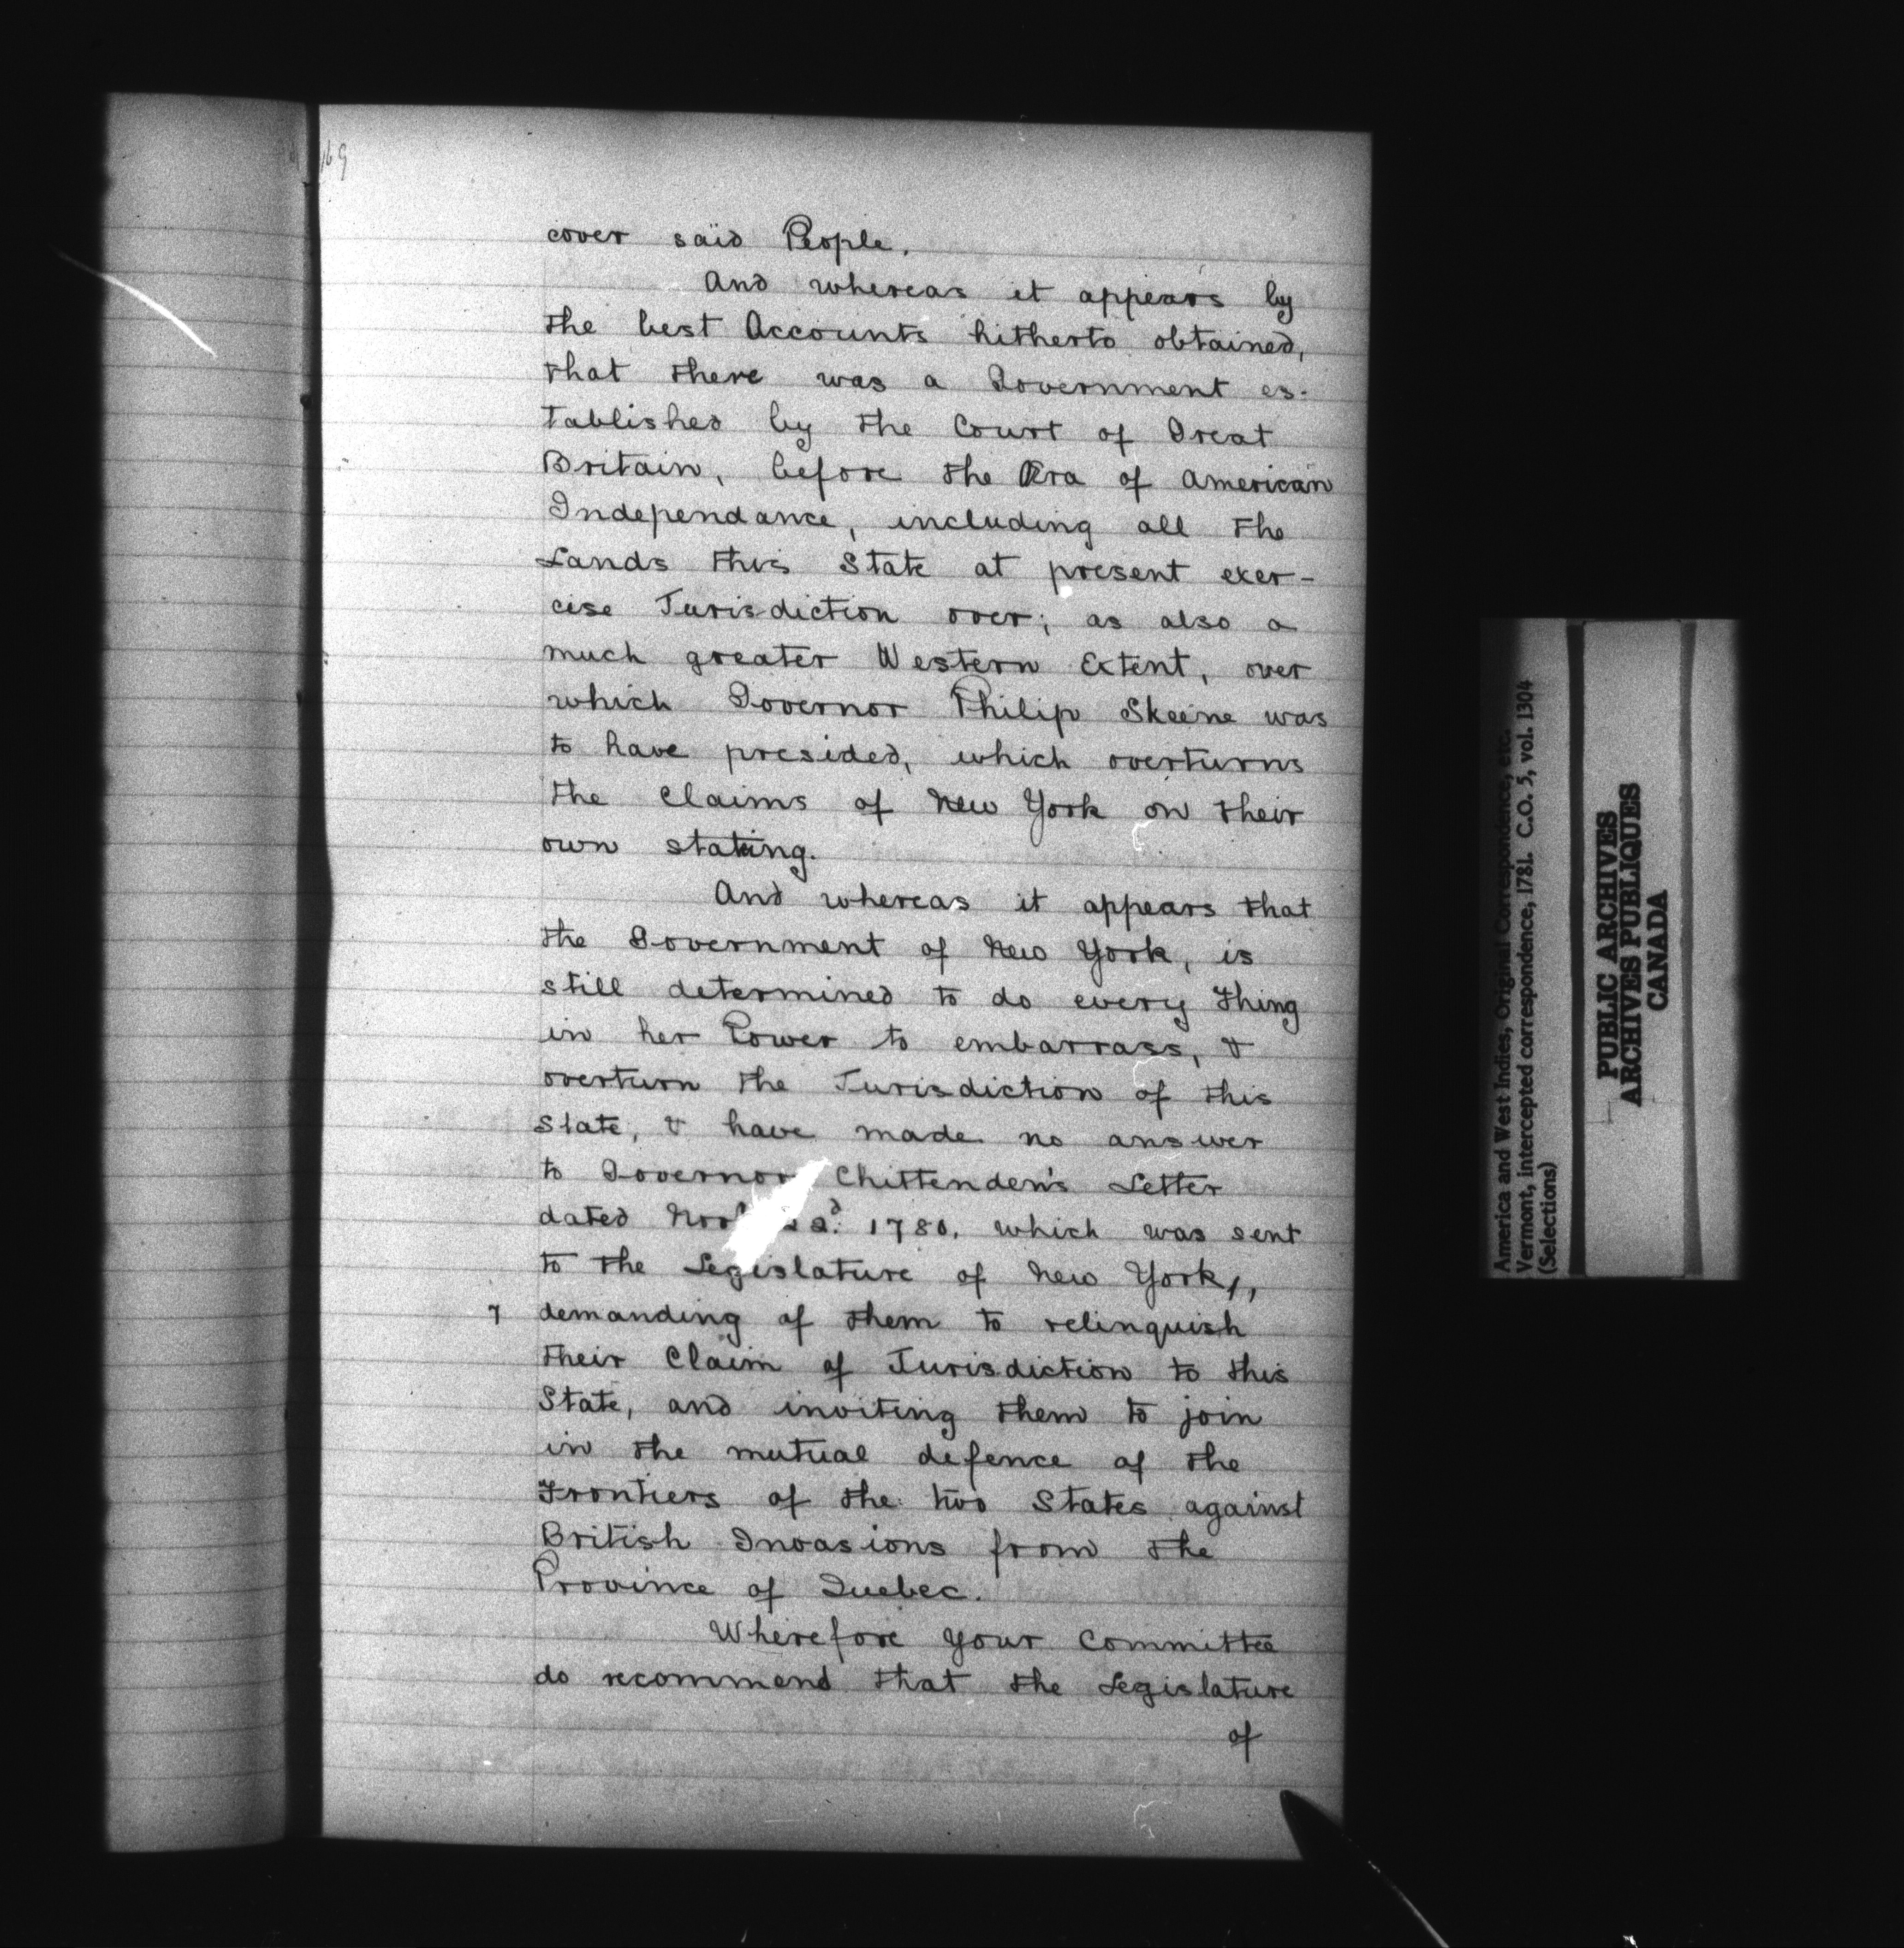 169
cover said People.
And whereas it appears by
the best Accounts hitherto obtained,
that there was a Government es-
tablished by the Court of Great
Britain, before the Æra of American
Independance, including all the
Lands this State at present exer-
cise Jurisdiction over; as also a
much greater Western Extent, over
which Governor Philip Skeene was
to have presided, which overturns
the Claims of New York on their
own stating.
And whereas it appears that
the Government of New York, is
still determined to do every thing
in her Power to embarrass, &
overturn the Jurisdiction of this
State, & have made no answer
to Governor Chittenden's Letter
dated 1780, which was sent
to the Legislature of New York,,
7 demanding of them to relinquish
their Claim of Jurisdiction to this
State, and inviting them to join
in the mutual defence of the
Frontiers of the two States against
British Invasions from the
Province of Quebec.
Wherefore your Committee
do recommend that the Legislature
of
America and West Indies, Original Correspondence, etc.
Vermont, intercepted correspondence, 1781. C.O. 5, vol. 1304
(Selections)
PUBLIC ARCHIVES
ARCHIVES PUBLIQUES
CANADA